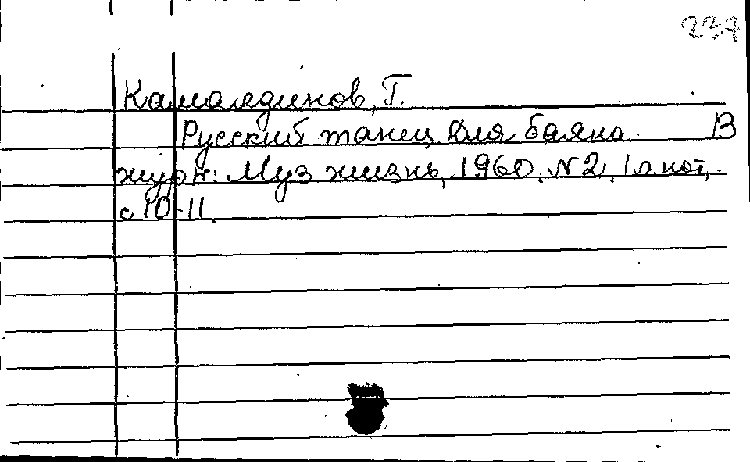 237
Камалединов, Г.
Русский танец для баяна. В
журн: Муз жизнь, 1960, N2,
с 10-11.